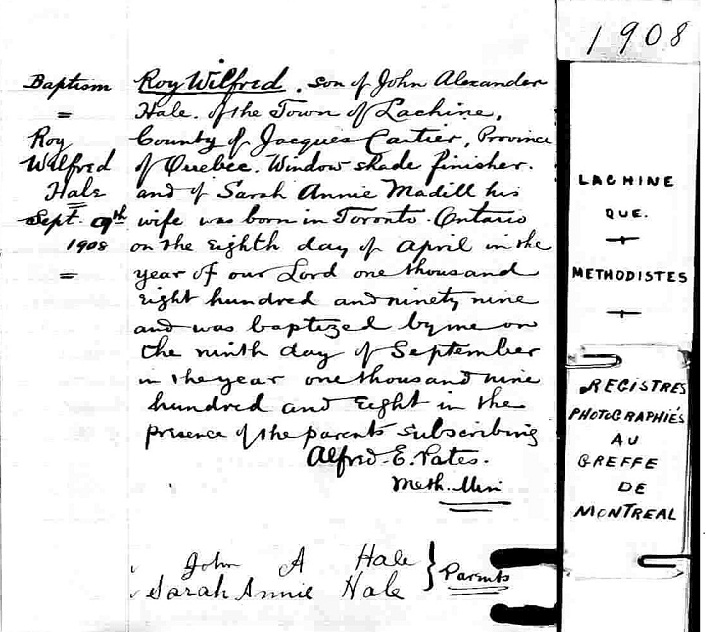 1908
Baptism
=
Roy
Wilfred
Hale
Sept. 9th
1908
=
Roy Wilfred, son of John Alexander
Hale, of the Town of Lachine,
County of Jacques Cartier, Province
of Quebec. Window shade finisher.
and of Sarah Annie Madill his
wife was born in Toronto. Ontario
on the eighth day of April in the
year of our Lord one thousand
eight hundred and ninety nine
and was baptized by me on
the ninth day of September
in the year one thousand nine
hundred and eight in the
presence of the parents subscribing
Alfred. E. Pates.
Meth. Min
John A Hale
Sarah Annie Hale } Parents
LACHINE
QUE.
METHODISTES
REGISTRES
PHOTOGRAPHIÉS
AU
GREFFE
DE
MONTREAL